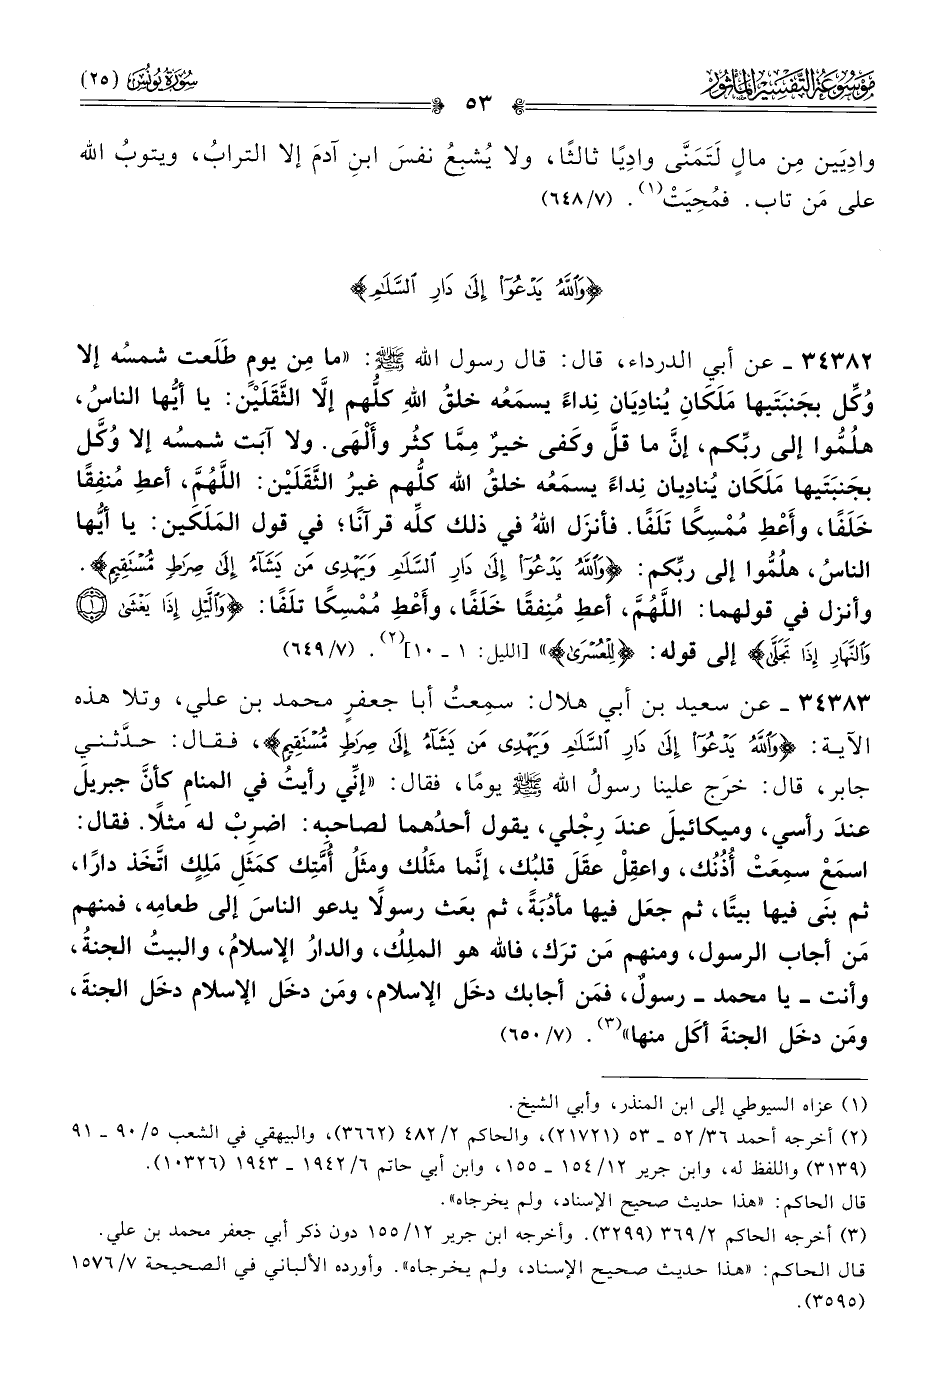 مَوْسُوعَةُ التَّفْسِيرِ المَأْثُورِ
سُورَةُ يُونُسَ (٢٥)
٥٣
وادِيَين مِن مالٍ لَتَمَنَّى وادِيًا ثالثًا، ولا يُشبِعُ نفسَ ابنِ آدمَ إلا الترابُ، ويتوبُ الله
على مَن تاب. فمُحِيَتْ(١). (٦٤٨/٧)
﴿وَٱللَّهُ يَدْعُوٓا۟ إِلَىٰ دَارِ ٱلسَّلَـٰمِ﴾
٣٤٣٨٢ ـ عن أبي الدرداء، قال: قال رسول الله ﷺ: «ما مِن يومٍ طَلَعت شمسُه إلا
وُكِّل بجَنبَتَيها مَلَكانِ يُنادِيَان نِداءً يسمَعُه خلقُ اللهِ كلُّهم إلَّا الثَّقَلَيْن: يا أيُّها الناسُ،
هلُمُّوا إلى ربِّكم، إنَّ ما قلَّ وكَفى خيرٌ مِمَّا كثُر وأَلْهَى. ولا آبَت شمسُه إلا وُكَّل
بجَنبَتَيها مَلَكان يُنادِيان نِداءً يسمَعُه خلقُ الله كلُّهم غيرُ الثَّقَلَيْن: اللَّهُمَّ، أعطِ مُنفِقًا
خَلَفًا، وأَعْطِ مُمْسِكًا تَلَفًا. فأنزَل اللهُ في ذلك كلِّه قرآنًا؛ في قول المَلَكَين: يا أيُّها
الناسُ، هلُمُّوا إلى ربِّكم: ﴿وَٱللَّهُ يَدْعُوٓا۟ إِلَىٰ دَارِ ٱلسَّلَـٰمِ وَيَهْدِى مَن يَشَآءُ إِلَىٰ صِرَٰطٍ مُّسْتَقِيمٍ﴾.
وأنزل في قولهما: اللَّهُمَّ، أعطِ مُنفِقًا خَلَفًا، وأعْطِ مُمْسِكًا تلَفًا: ﴿وَٱلَّيْلِ إِذَا يَغْشَىٰ ۝١
وَٱلنَّهَارِ إِذَا تَجَلَّىٰ﴾ إلى قوله: ﴿لِلْعُسْرَىٰ﴾» [الليل: ١ ـ ١٠](٢). (٦٤٩/٧)
٣٤٣٨٣ ـ عن سعيد بن أبي هلال: سمِعتُ أبا جعفرٍ محمد بن علي، وتلا هذه
الآية: ﴿وَٱللَّهُ يَدْعُوٓا۟ إِلَىٰ دَارِ ٱلسَّلَـٰمِ وَيَهْدِى مَن يَشَآءُ إِلَىٰ صِرَٰطٍ مُّسْتَقِيمٍ﴾، فقال: حدَّثني
جابر، قال: خرَج علينا رسولُ الله ﷺ يومًا، فقال: «إنِّي رأيتُ في المنامِ كأنَّ جبريلَ
عندَ رأسي، وميكائيلَ عندَ رِجْلي، يقول أحدُهما لصاحبِه: اضرِبْ له مثلًا. فقال:
اسمَعْ سمِعَتْ أُذُنُك، واعقِلْ عقَلَ قلبُك، إنَّما مثَلُك ومثَلُ أُمَّتِك كمَثَلِ مَلِكٍ اتَّخذ دارًا،
ثم بنَى فيها بيتًا، ثم جعَل فيها مأدُبَةً، ثم بعَث رسولًا يدعو الناسَ إلى طعامِه، فمنهم
مَن أجاب الرسول، ومنهم مَن ترَك، فالله هو الملِكُ، والدارُ الإسلامُ، والبيتُ الجنةُ،
وأنت ـ يا محمد ـ رسولٌ، فمَن أجابك دخَل الإسلام، ومَن دخَل الإسلام دخَل الجنةَ،
ومَن دخَل الجنةَ أكَل منها»(٣). (٦٥٠/٧)
(١) عزاه السيوطي إلى ابن المنذر، وأبي الشيخ.
(٢) أخرجه أحمد ٥٢/٣٦ ـ ٥٣ (٢١٧٢١)، والحاكم ٤٨٢/٢ (٣٦٦٢)، والبيهقي في الشعب ٩٠/٥ ـ ٩١
(٣١٣٩) واللفظ له، وابن جرير ١٥٤/١٢ ـ ١٥٥، وابن أبي حاتم ١٩٤٢/٦ ـ ١٩٤٣ (١٠٣٢٦).
قال الحاكم: «هذا حديث صحيح الإسناد، ولم يخرجاه».
(٣) أخرجه الحاكم ٣٦٩/٢ (٣٢٩٩). وأخرجه ابن جرير ١٥٥/١٢ دون ذكر أبي جعفر محمد بن علي.
قال الحاكم: «هذا حديث صحيح الإسناد، ولم يخرجاه». وأورده الألباني في الصحيحة ١٥٧٦/٧
(٣٥٩٥).